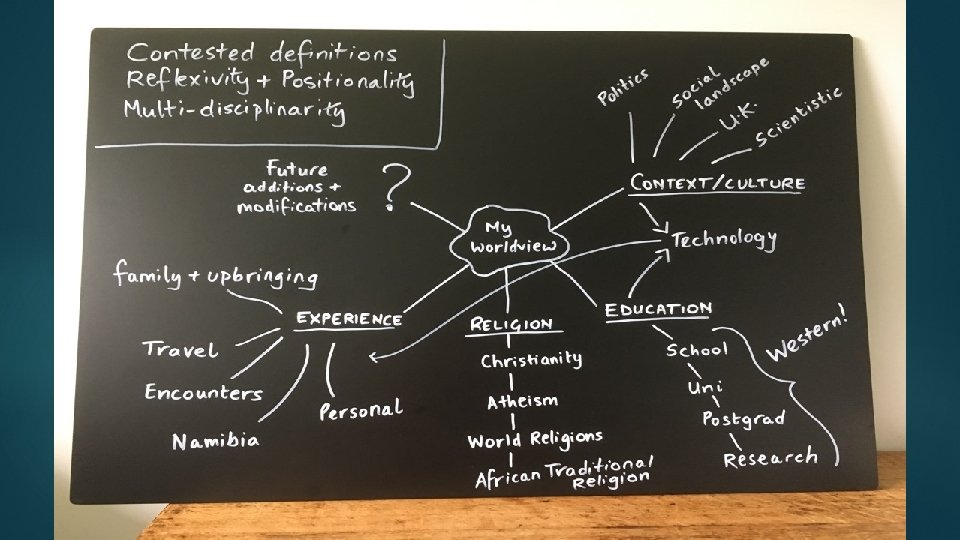 Contested definitions
Reflexivity + Positionality
Multi-disciplinarity
Politics
Social
landscape
U.K.
Scientistic
Future
additions +
modifications
?
CONTEXT/CULTURE
My
worldview
Technology
family + upbringing
EXPERIENCE
Travel
Encounters
Namibia
Personal
RELIGION
Christianity
Atheism
World Religions
African Traditional
Religion
EDUCATION
School
Uni
Postgrad
Research
Western!